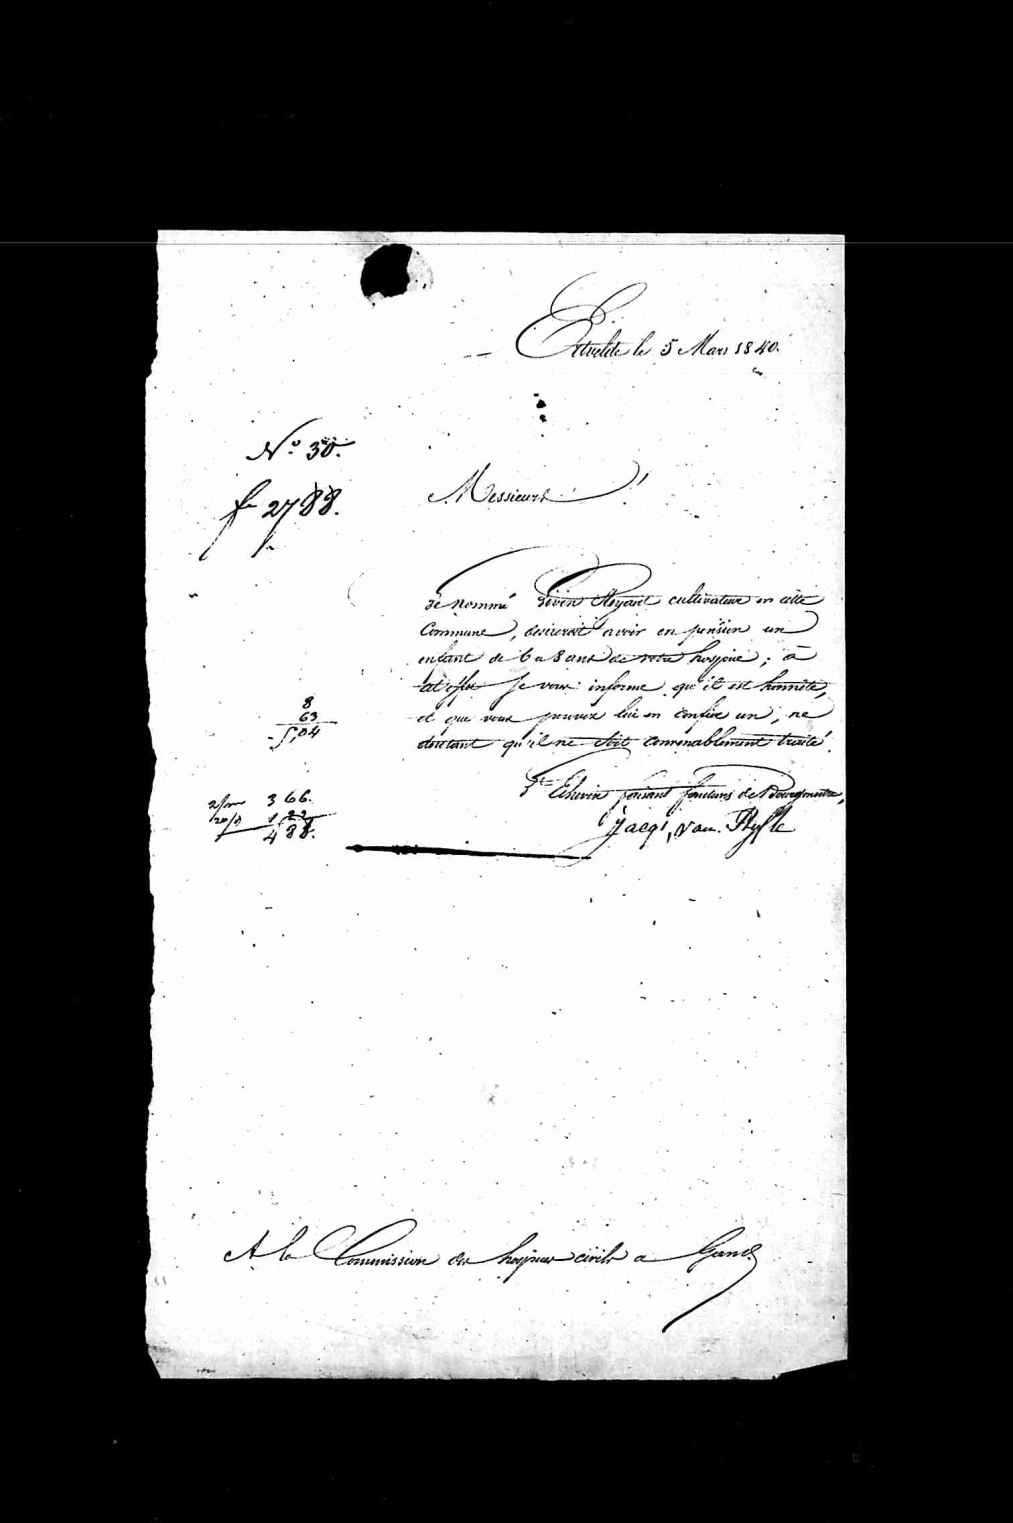 Ertvelde le 5 Mars 1840.
N.º 30.
f 2788.
Messieurs!
Le Nommé Livin cultivateur en cette
Commune, desirerait avoir en pension un
enfant de 6 a 8 ans de votre hospice; à
cet effet je vous informe qu'il est honnête,
et que vous pouvez lui en confier un, ne
doutant qu'il ne soit convenablement traité.
8
63
5,04
366.
122
488.
L'Echevin faisant fonctions de Bourgmestre,
Jacqs. van
A la Commission des hospices civils a Gand